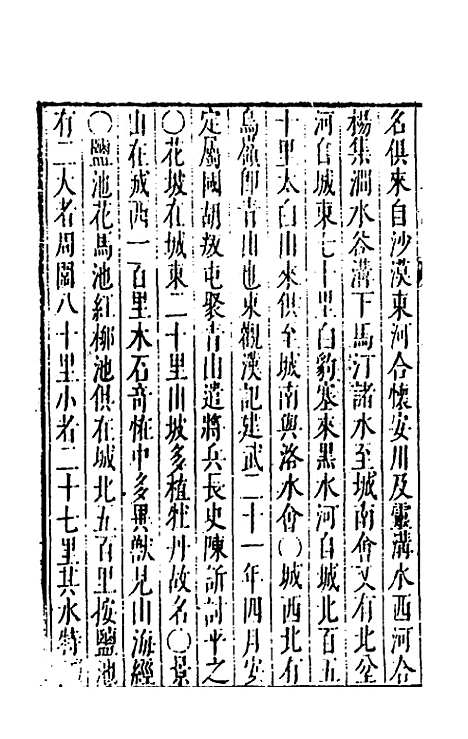 名俱來自沙漠東河合懷安川及靈溝水西河合
楊集澗水谷溝下馬汀諸水至城南會又有北岔
河自城東七十里白豹塞來黑水河自城北百五
十里太白山來俱至城南與洛水會〇城西北有
烏嶺即青山也東觀漢記建武二十一年四月安
定屬國胡叛屯聚青山遣將兵長史陳訢討平之
〇花坡在城東二十里山坡多植牡丹故名〇景
山在城西一百里木石奇恠中多異獸見山海經
〇鹽池花馬池紅柳池俱在城北五百里按鹽池
有二大者周圍八十里小者二十七里其水特